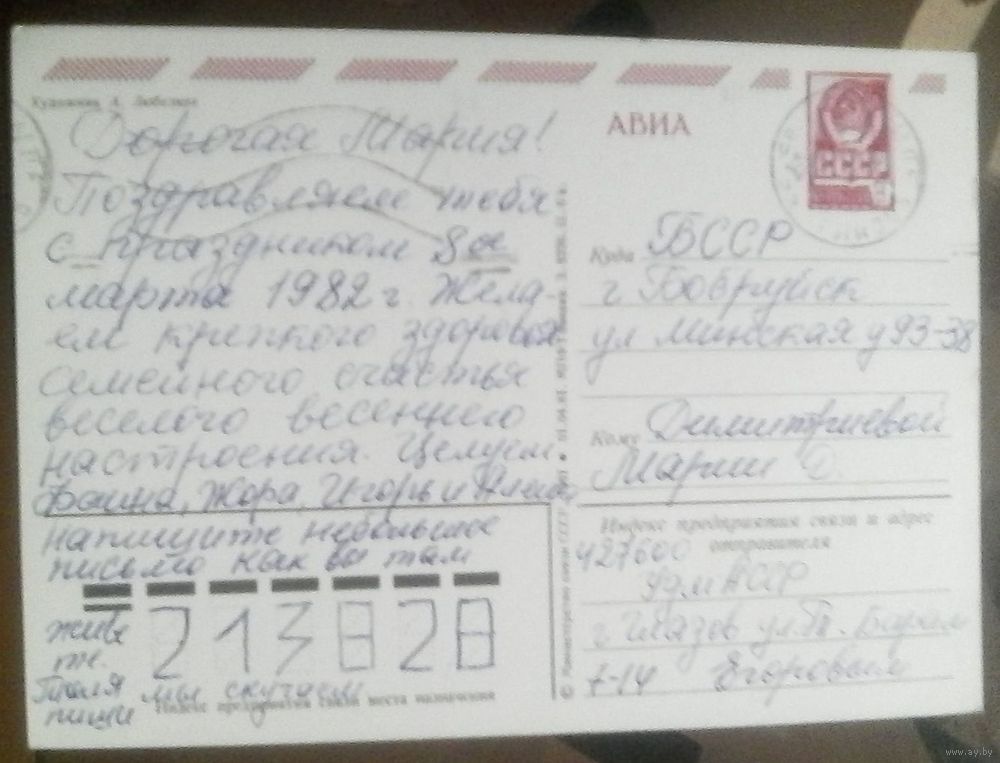 Художник А. Любезнов
Дорогая Мария!
Поздравляем тебя
с праздником 8ого
марта 1982 г. Жела-
ем крепкого здоровья
семейного счастья
веселого весеннего
настроения. Целуем.
Фаина, Жора, Игорь и
напишите небольшое
письмо как вы там
живе
те.
Толя мы скучаем
пиши
213828
Индекс предприятия связи места назначения
© Министерство связи СССР
АВИА
СССР
Куда БССР
г Бобруйск
ул Минская д 93-38
Кому Димитриевой
Марии Д.
Индекс предприятия связи и адрес
отправителя
427600
УдмАССР
г Глазов ул. Т. Барам
7-14 Егоровым
www.ay.by